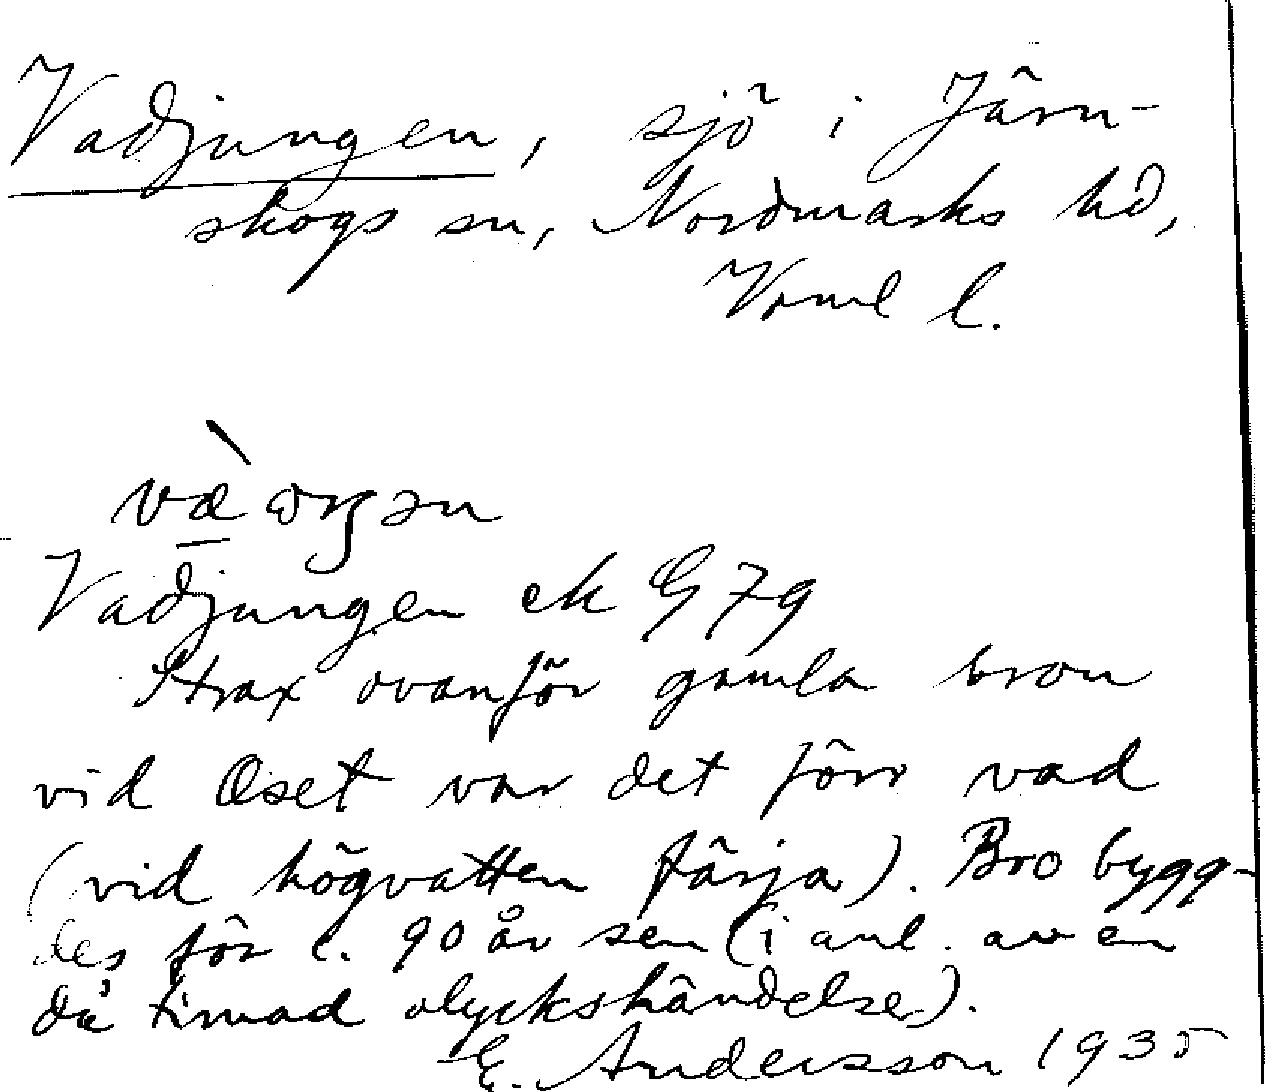 Vadjungen, sjö i Järn-
skogs sn, Nordmarks hd,
Vrml l.
Vadjungen ek G 79
Strax ovanför gamla bron
vid Öset var det förr vad
(vid högvatten färja). Bro bygg-
des för c. 90 år sen (i anl. av en
då timad olyckshändelse).
E. Andersson 1935